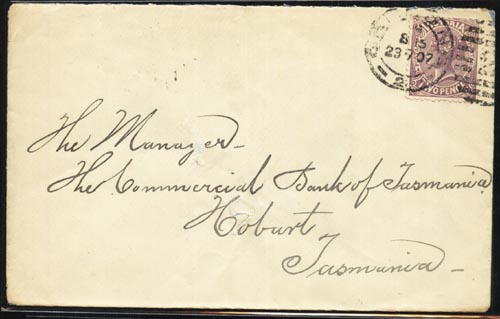 B S
23·7 07
2
TWO PENCE
The Manager–
The Commercial Bank of Tasmania
Hobart
Tasmania–